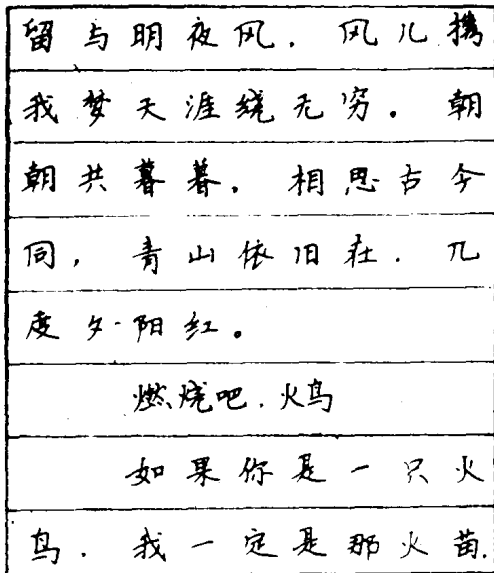 留与明夜风. 风儿携
我梦天涯绕无穷。朝
朝共暮暮. 相思古今
同, 青山依旧在. 几
度夕阳红。
燃烧吧. 火鸟
如果你是一只火
鸟. 我一定是那火苗.